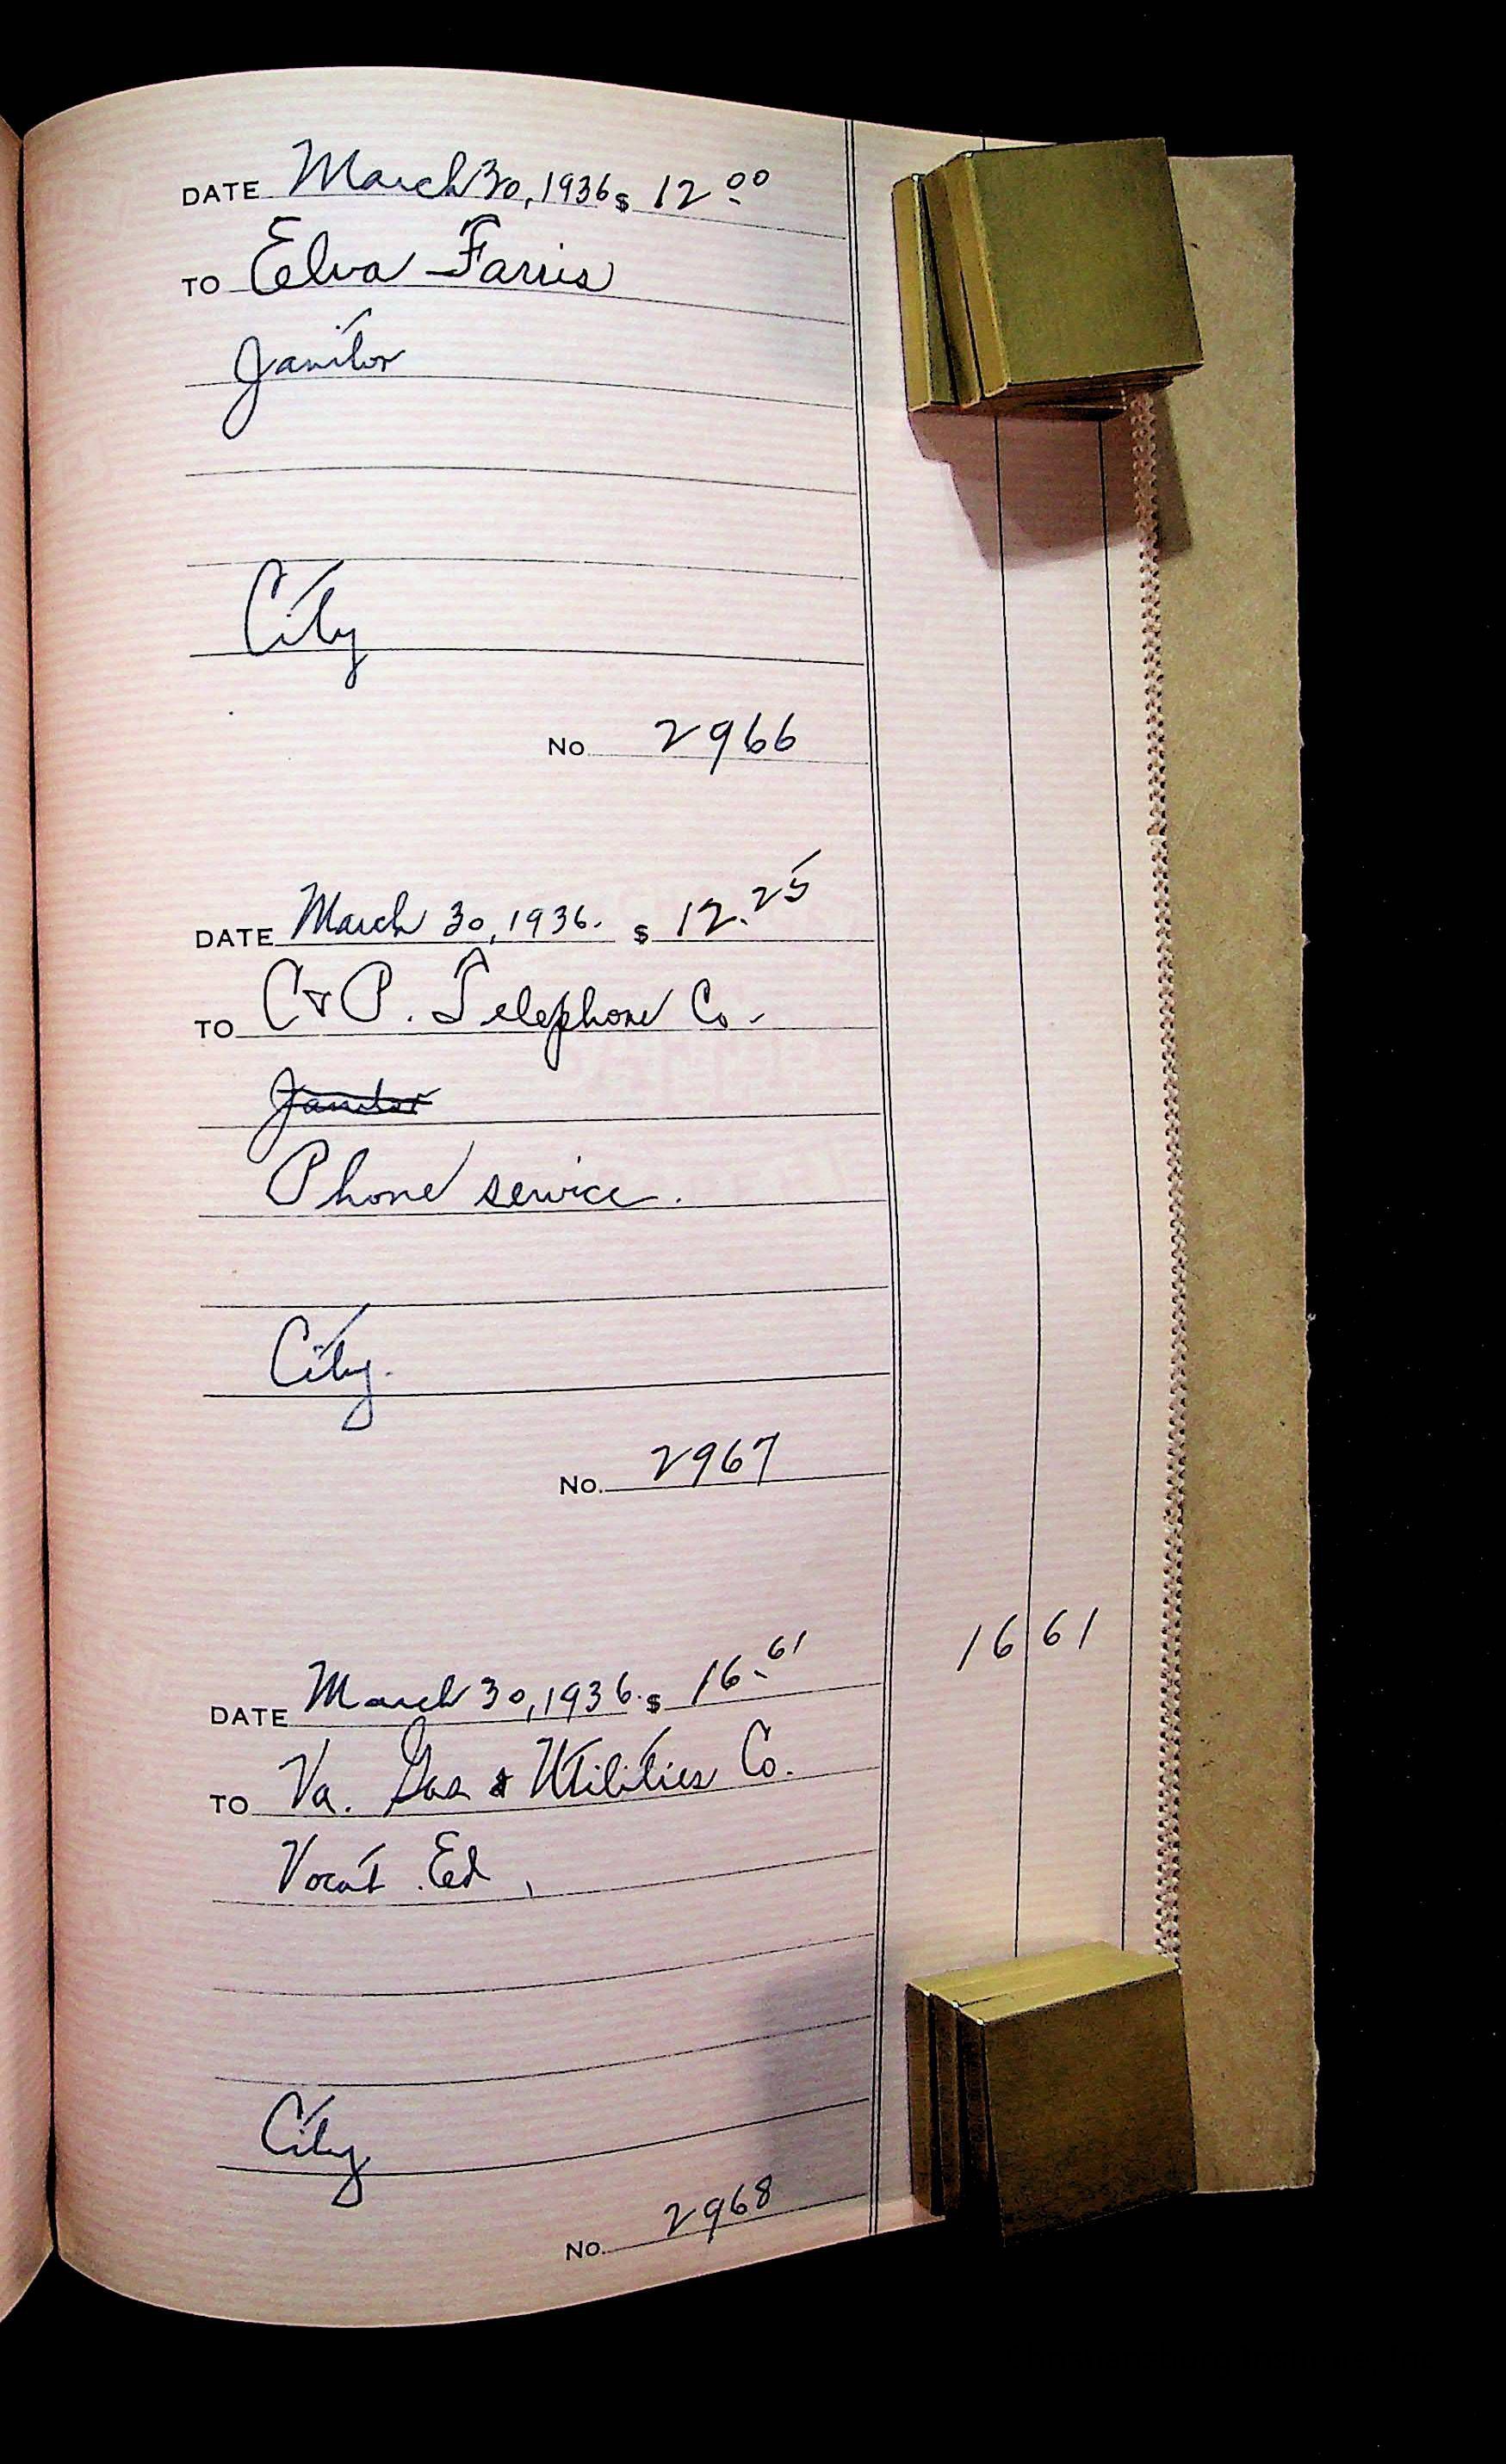 DATE March 30, 1936 $ 12 00
TO Elva Farris
Janitor
City
No. 2966
DATE March 30, 1936. $ 12.25
TO C & P. Telephone Co.
Janitor
Phone service.
City.
No. 2967
DATE March 30, 1936. $ 16.61 16 61
TO Va. Gas & Utilities Co.
Vocat. Ed.
City
No. 2968